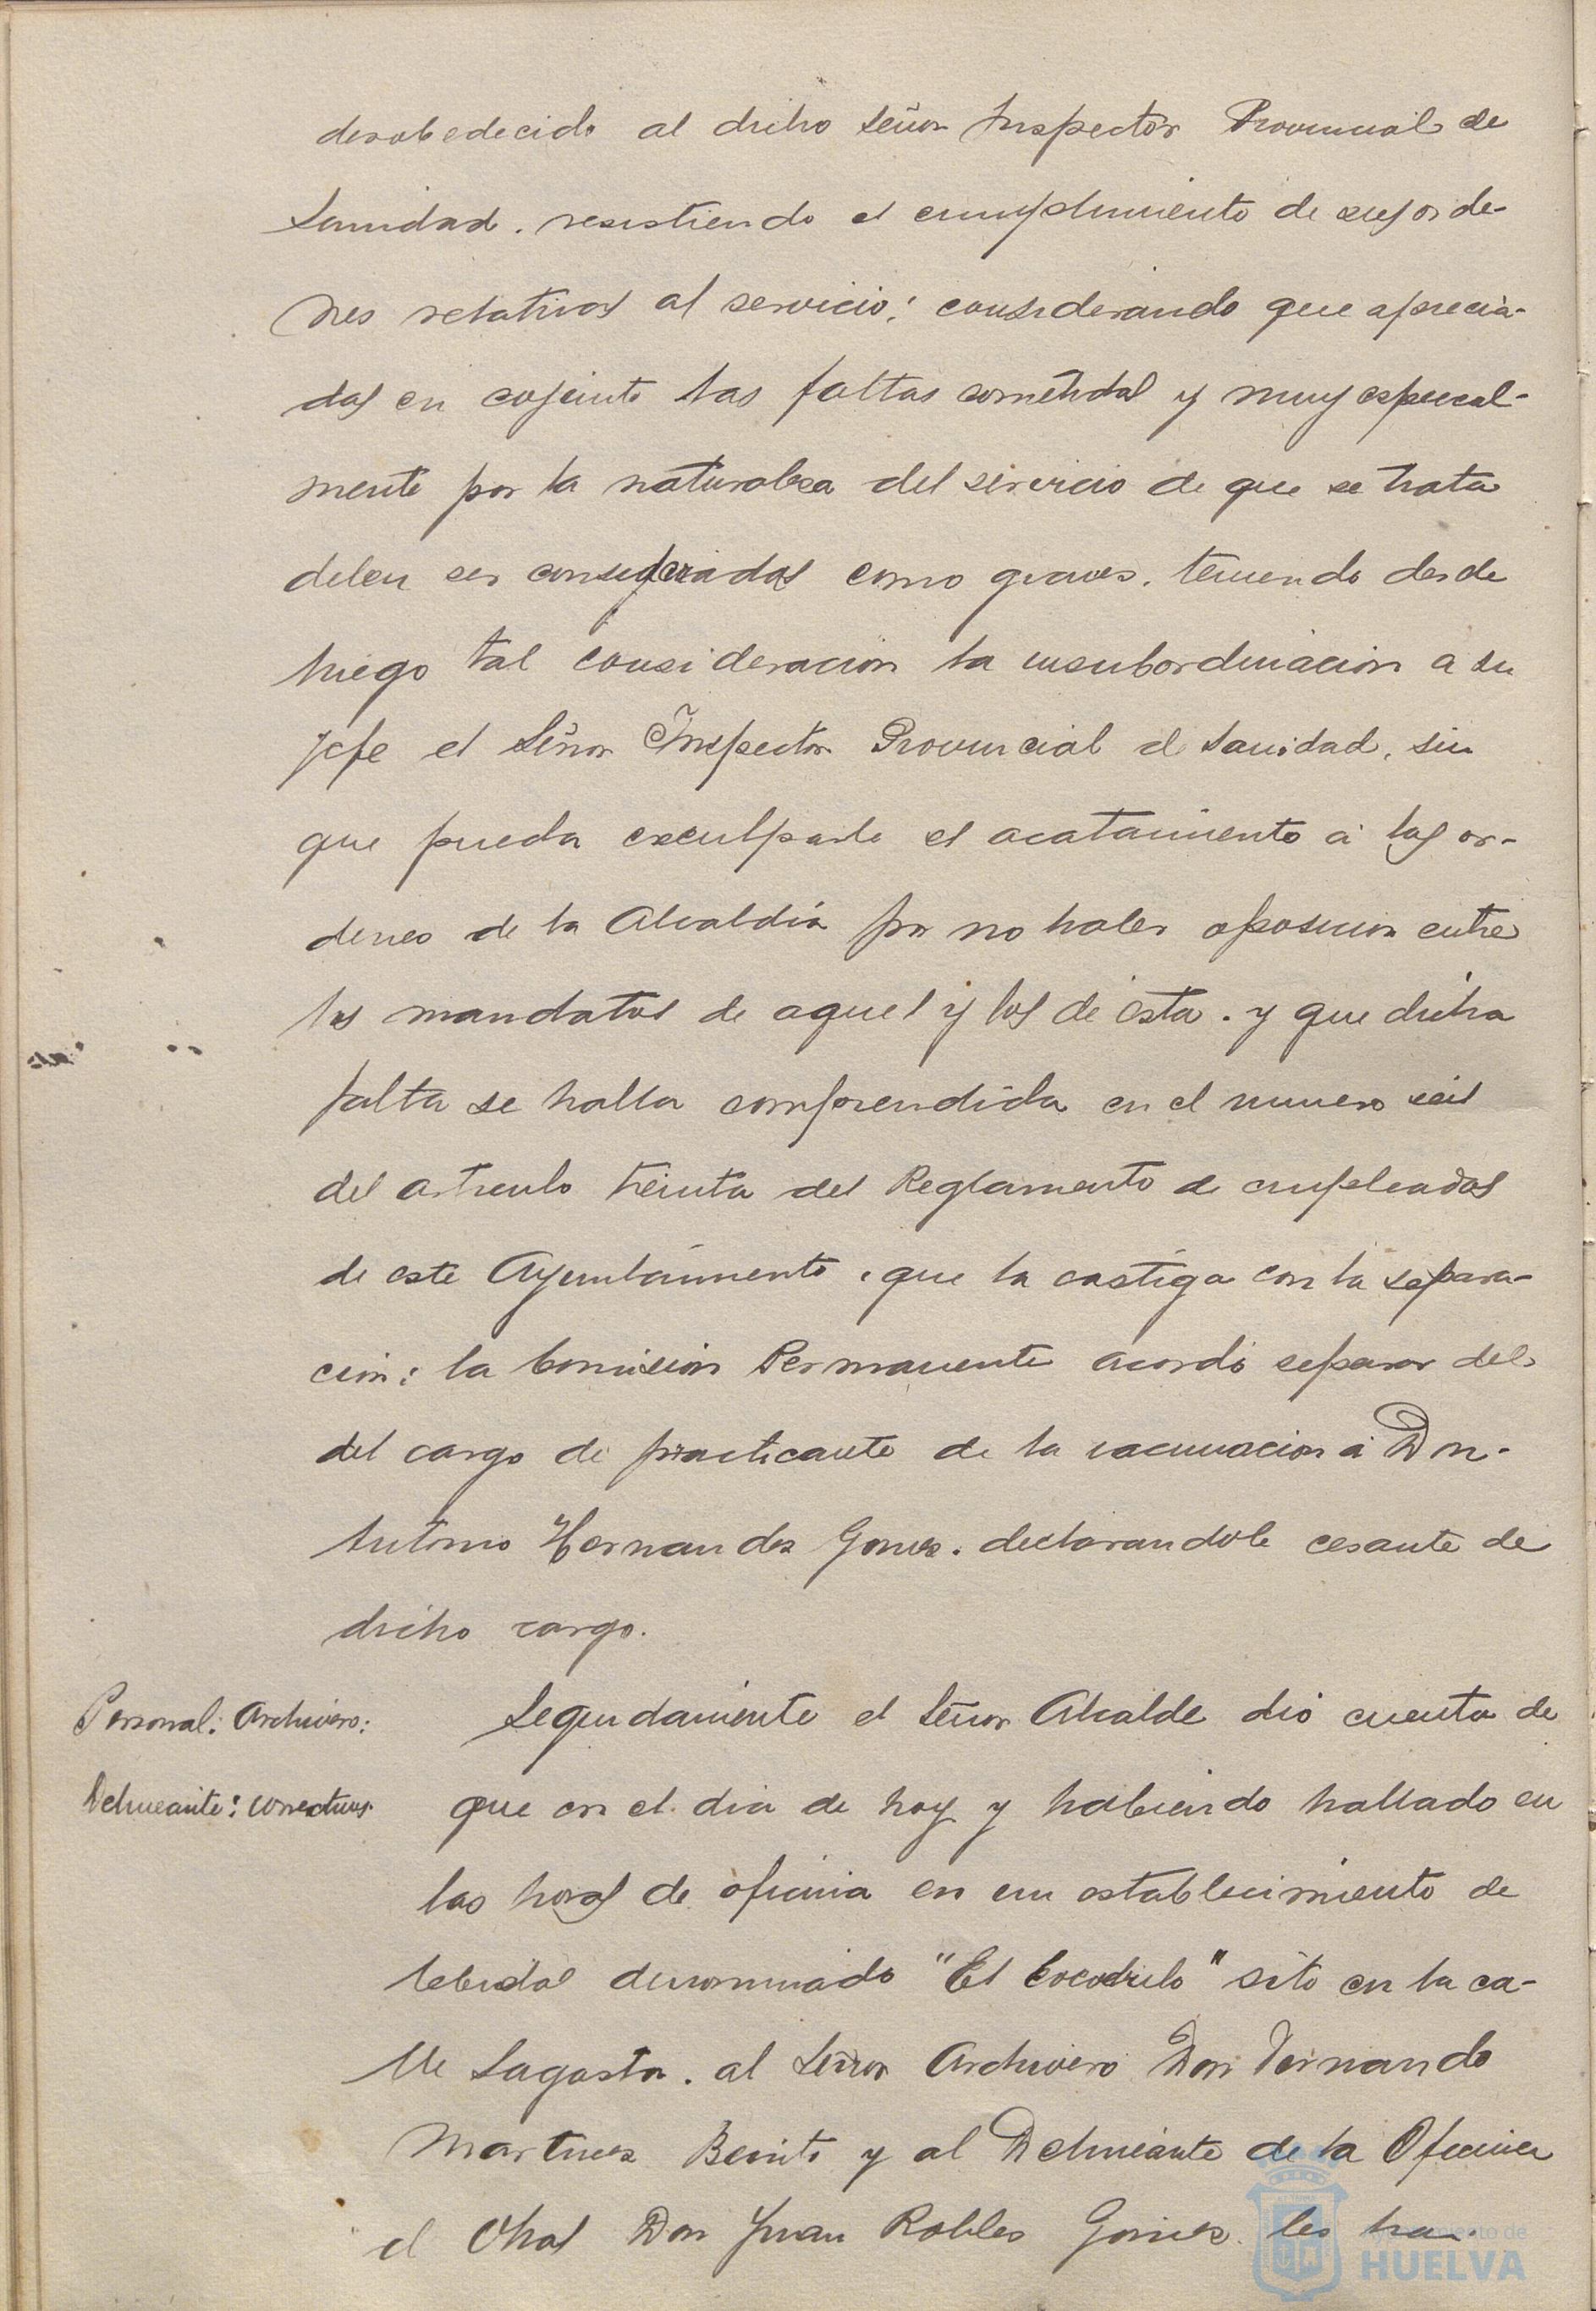 desobedecido al dicho Señor Inspector Provincial de
Sanidad. resistiendo el cumplimiento de sus orde-
nes relativas al servicio; considerando que aprecia-
das en cojunto las faltas cometidas y muy especial-
mente por la naturaleza del servicio de que se trata
deben ser consideradas como graves. teniendo desde
luego tal consideracion la insubordinacion a su
jefe el Señor Inspector Provincial de Sanidad, sin
que pueda exculparle el acatamiento a las or-
denes de la Alcaldía por no haber oposicion entre
los mandatos de aquel y los de ésta. y que dicha
falta se halla comprendida en el numero seis
del articulo treinta del Reglamento de empleados
de este Ayuntamiento, que la castiga con la separa-
cion: la Comision Permanente acordó separar del
del cargo de practicante de la vacunacion a Don
Antonio Hernandez Gomez. declarandole cesante de
dicho cargo.
Personal: Archivero:
Delineante: correctivos.
Seguidamente el Señor Alcalde dió cuenta de
que en el dia de hoy y habiendo hallado en
las horas de oficina en un establecimiento de
bebidas denominado "El Cocodrilo" sito en la ca-
lle Sagasta. al Señor Archivero Don Fernando
Martinez Benito y al Delineante de la Oficina
d Obras Don Juan Robles Gomez. les ha
Ayuntamiento de
HUELVA